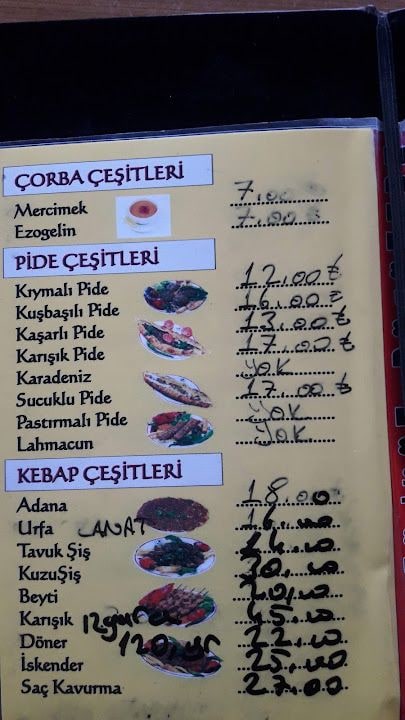 ÇORBA ÇEŞİTLERİ
Mercimek 7.00
Ezogelin 7.00
PİDE ÇEŞİTLERİ
Kıymalı Pide 12.00 ₺
Kuşbaşılı Pide 16.00 ₺
Kaşarlı Pide 13.00 ₺
Karışık Pide 17.00 ₺
Karadeniz yok
Sucuklu Pide 17.00 ₺
Pastırmalı Pide yok
Lahmacun yok.
KEBAP ÇEŞİTLERİ
Adana 18.00
Urfa KANAT 16.00
Tavuk Şiş
KuzuŞiş
Beyti
Karışık 45.00
Döner 120, gr 22.00
İskender 25.00
Saç Kavurma 27.00